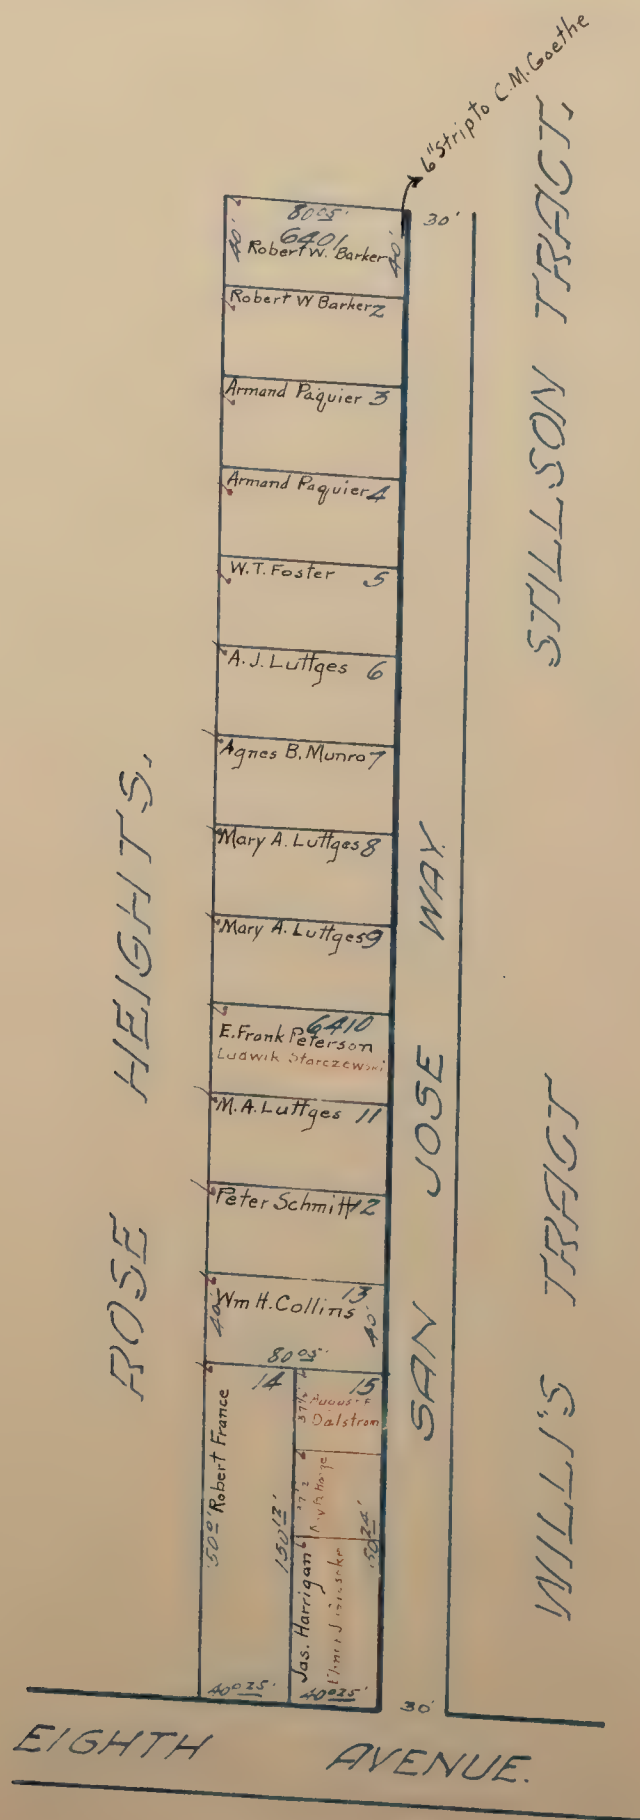 6" Strip to C.M. Goethe
80 05'
30'
6401
40'
Robert W. Barker
40'
Robert W Barker 2
Armand Paquier 3
Armand Paquier 4
W.T. Foster 5
A. J. Luttges 6
Agnes B. Munro 7
Mary A. Luttges 8
Mary A. Luttges 9
6410
E. Frank Peterson
Ludwik Starczewski
M. A. Luttges 11
Peter Schmitt 12
13
Wm H. Collins
40'
40'
80 05'
14
15
August F
Dalstrom
Robert France
150 12'
Jas. Harrigan
40 025'
40 025'
30'
ROSE HEIGHTS.
SAN JOSE WAY.
STILLSON TRACT.
WILTI'S TRACT
EIGHTH AVENUE.